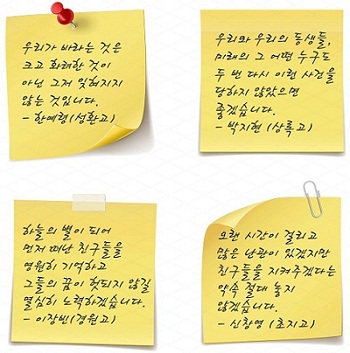 우리가 바라는 것은
크고 화려한 것이
아닌 그저 잊혀지지
않는 것입니다.
- 한예령(선환고)
우리와 우리의 동생들,
미래의 그 어떤 누구도
두 번 다시 이런 사건을
당하지 않았으면
좋겠습니다.
- 박지현(상록고)
하늘의 별이 되어
먼저 떠난 친구들을
영원히 기억하고
그들의 꿈이 헛되지 않길
열심히 노력하겠습니다.
- 이장빈(경원고)
오랜 시간이 걸리고
많은 난관이 있겠지만
친구들을 지켜주겠다는
약속 절대 놓지
않겠습니다.
- 신창엽(초지고)